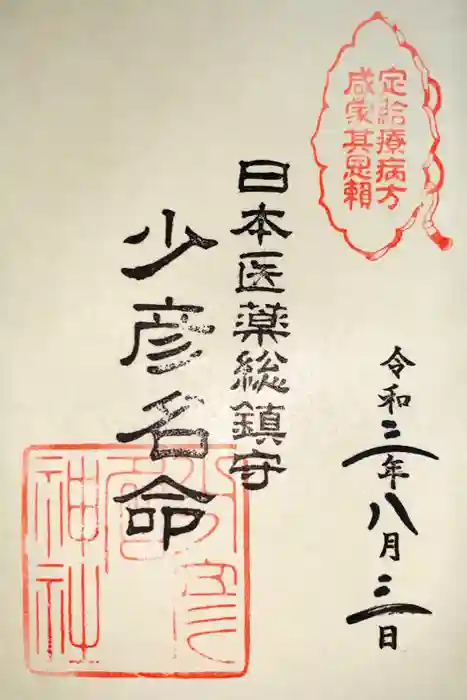 定給療病方
咸蒙其恩賴
令和三年八月三日
日本医薬総鎮守
少彦名命
少彦
名
神社